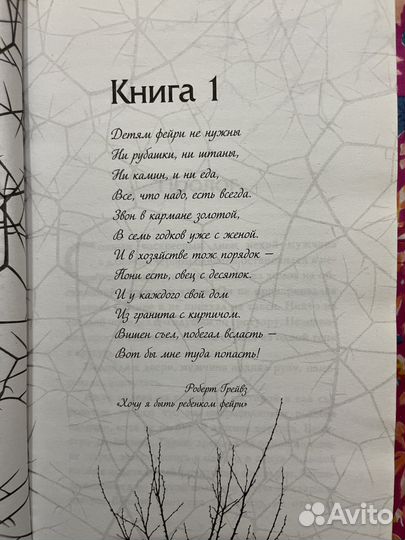 Книга 1
Детям фейри не нужны
Ни рубашки, ни штаны,
Ни камин, и ни еда,
Все, что надо, есть всегда.
Звон в кармане золотой,
В семь годков уже с женой.
И в хозяйстве тож порядок —
Пони есть, овец с десяток.
И у каждого свой дом
Из гранита с кирпичом.
Вишен съел, побегал всласть —
Вот бы мне туда попасть!
Роберт Грейвз
«Хочу я быть ребенком фейри»
Avito